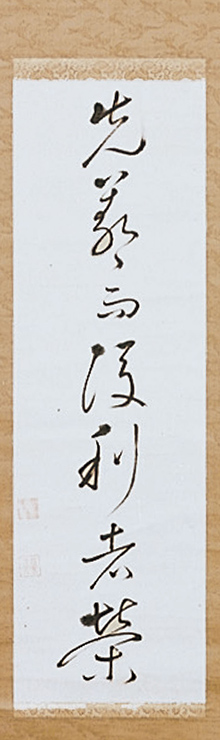 先義而後利者栄